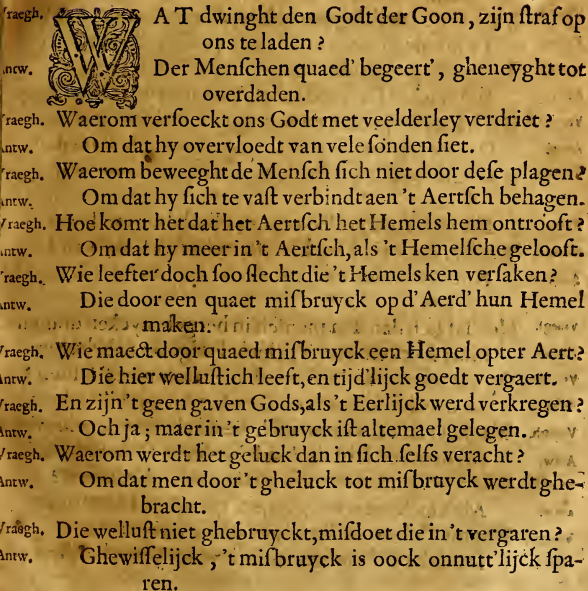 Vraegh. WAT dwinght den Godt der Goon, zijn ſtraf op
ons te laden ?
Antw. Der Menſchen quaed' begeert', gheneyght tot
overdaden.
Vraegh. Waerom verſoeckt ons Godt met veelderley verdriet ?
Antw. Om dat hy overvloedt van vele ſonden ſiet.
Vraegh. Waerom beweeght de Menſch ſich niet door deſe plagen?
Antw. Om dat hy ſich te vaſt verbindt aen 't Aertſch behagen.
Vraegh. Hoe komt het dat het Aertſch het Hemels hem ontrooft ?
Antw. Om dat hy meer in 't Aertſch, als 't Hemelſche gelooft.
Vraegh. Wie leefter doch ſoo ſlecht die 't Hemels ken verſaken ?
Antw. Die door een quaet miſbruyck op d'Aerd' hun Hemel
maken.
Vraegh. Wie maeckt door quaed miſbruyck een Hemel opter Aert?
Antw. Die hier welluſtich leeft, en tijd'lijck goedt vergaert.
Vraegh. En zijn 't geen gaven Gods, als 't Eerlijck werd verkregen ?
Antw. Och ja ; maer in 't gebruyck iſt altemael gelegen.
Vraegh. Waerom werdt het geluck dan in ſich ſelfs veracht ?
Antw. Om dat men door 't gheluck tot miſbruyck werdt ghe-
bracht.
Vraegh. Die welluſt niet ghebruyckt, miſdoet die in 't vergaren ?
Antw. Ghewiſſelijck, 't miſbruyck is oock onnutt'lijck ſpa-
ren.